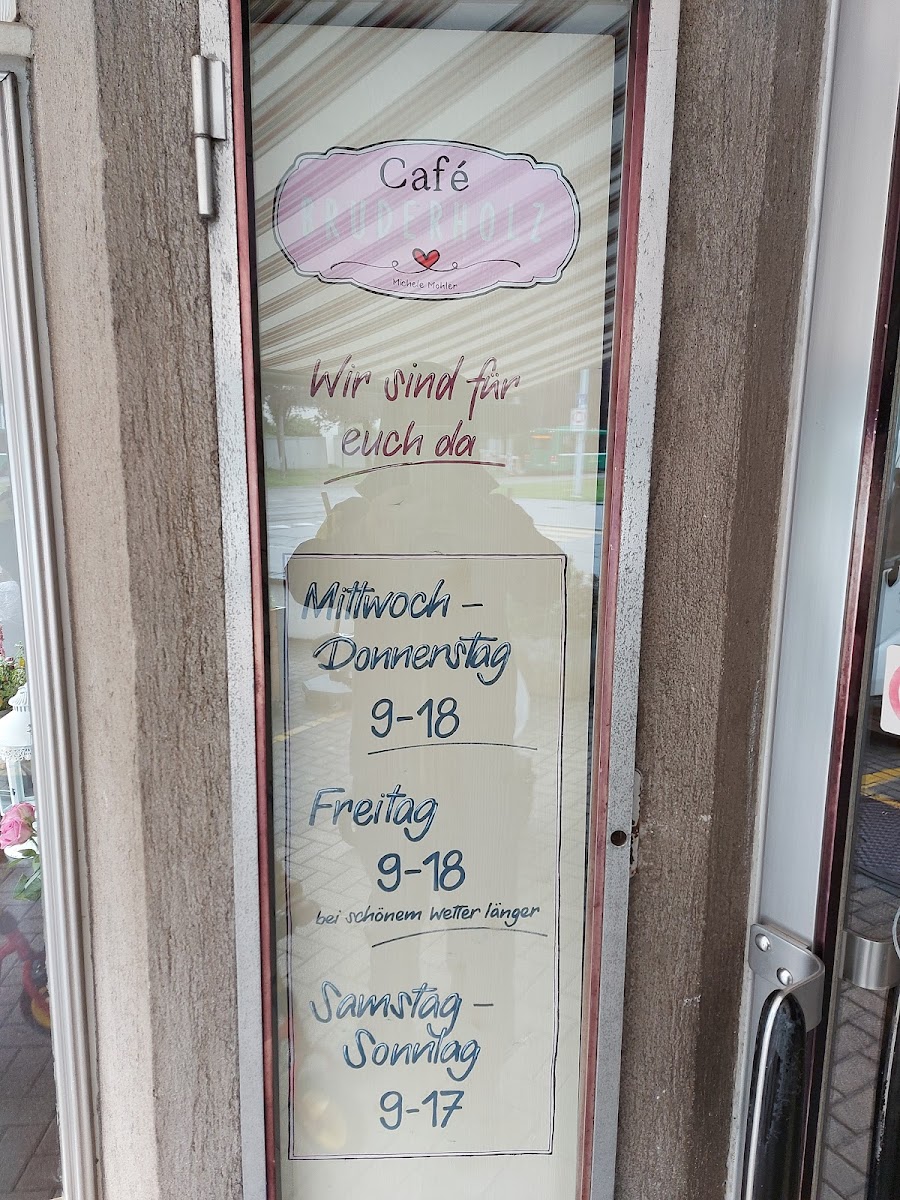 Café
BRUDERHOLZ
Michele Mohler
Wir sind für
euch da
Mittwoch –
Donnerstag
9-18
Freitag
9-18
bei schönem Wetter länger
Samstag –
Sonntag
9-17